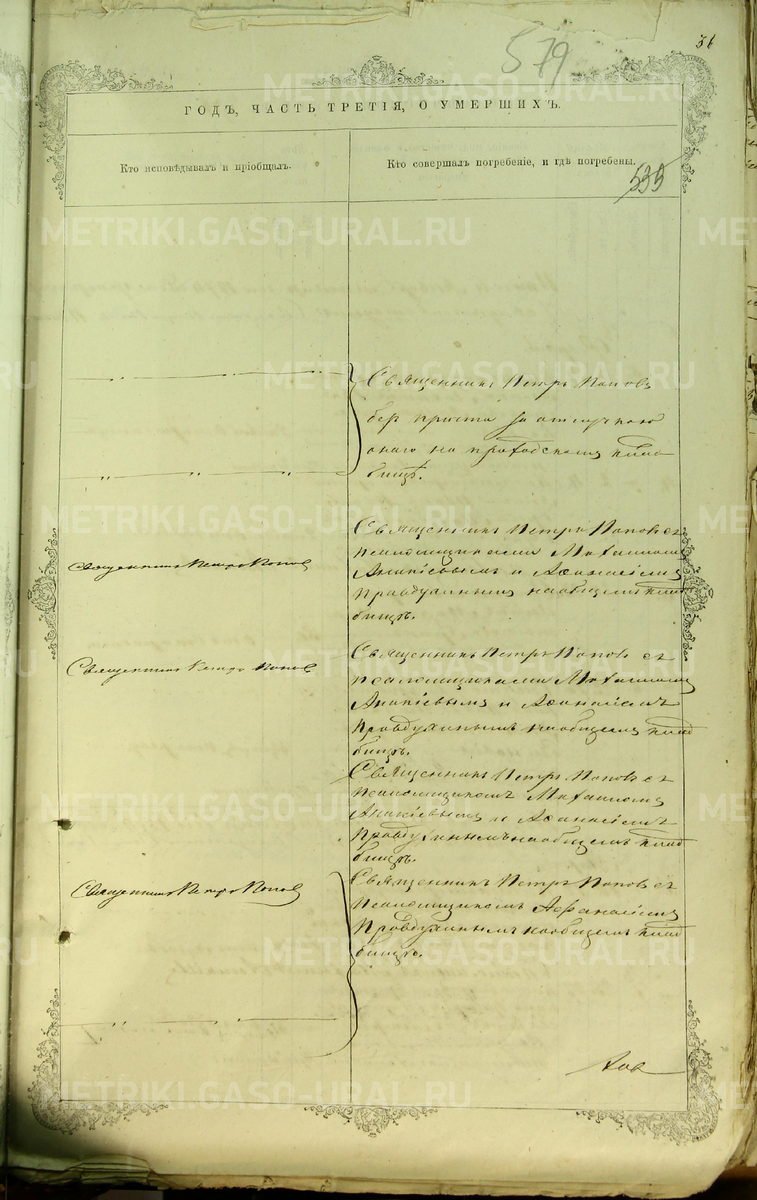 579
36
ГОДЪ, ЧАСТЬ ТРЕТІЯ, О УМЕРШИХЪ.
Кто исповѣдывалъ и пріобщалъ.
Кто совершалъ погребеніе, и гдѣ погребены.
535
METRIKI.GASO-URAL.RU
Священникъ Петръ Поповъ
без причта за отлучкою
онаго на приходскомъ клад
бищѣ.
Священникъ Петръ Поповъ
Священникъ Петръ Поповъ съ
псаломщиками Михаиломъ
Ананіевымъ и Аѳанасіемъ
Правдухинымъ на общемъ клад
бищѣ.
Священникъ Петръ Поповъ
Священникъ Петръ Поповъ съ
псаломщиками Михаиломъ
Ананіевымъ и Аѳанасіемъ
Правдухинымъ на общемъ клад
бищѣ.
Священникъ Петръ Поповъ съ
псаломщикомъ Михаиломъ
Ананіевымъ и Аѳанасіемъ
Правдухинымъ на общемъ клад
бищѣ.
Священникъ Петръ Поповъ
Священникъ Петръ Поповъ съ
псаломщикомъ Афанасіемъ
Правдухинымъ на общемъ клад
бищѣ.